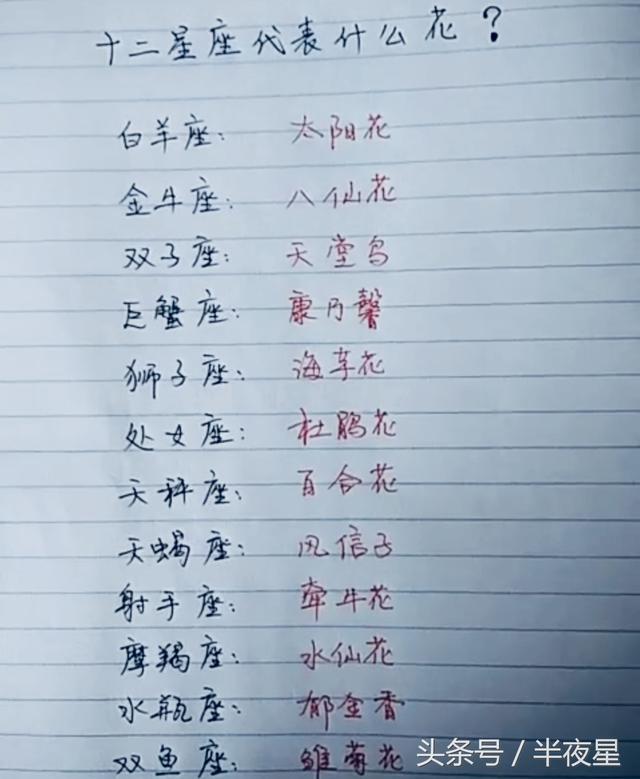 十二星座代表什么花?
白羊座: 太阳花
金牛座: 八仙花
双子座: 天堂鸟
巨蟹座: 康乃馨
狮子座: 海芋花
处女座: 杜鹃花
天秤座: 百合花
天蝎座: 风信子
射手座: 牵牛花
摩羯座: 水仙花
水瓶座: 郁金香
双鱼座: 雏菊花
头条号/半夜星